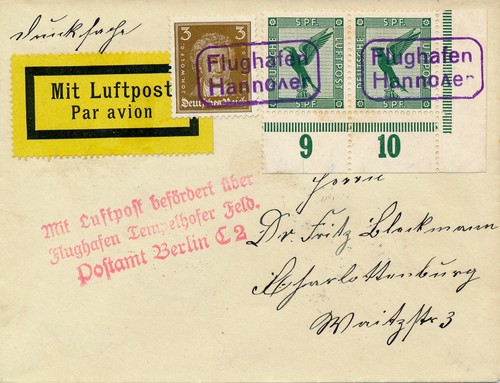 Drucksache
Mit Luftpost
Par avion
3 3
JOH. WOLFG.
Deutsches Reich
5 PF. 5 PF.
DEUTSCHE LUFTPOST DEUTSCHE LUFTPOST
5 PF. 5 PF.
Flughafen
Hannover
Flughafen
Hannover
9 10
Mit Luftpost befördert über
Flughafen Tempelhofer Feld.
Postamt Berlin C 2
Herrn
Dr. Fritz Blockmann
Charlottenburg
Waitzstr 3